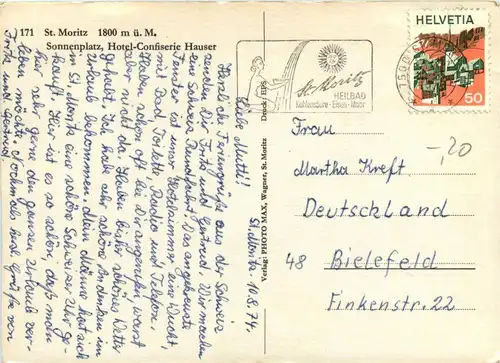 171 St. Moritz 1800 m ü. M.
Sonnenplatz, Hotel-Confiserie Hauser
HELVETIA
50
7500 ST. MORITZ
St. Moritz
HEILBAD
Kohlensäure-Eisen-Moor
Verlag: PHOTO MAX, Wagner, St. Moritz
Druck: TIPS
St. Moritz, 10.8.74
Liebe Mutti!
Herzliche Feriengrüße aus der Schweiz
senden Dir Fritz und Gertrud. Wir machen
eine Schweiz Rundfahrt. Das angekreuzte
Fenster ist unser Hotelzimmer. Eine Wucht,
mit Bad, Toilette, Radio und Telefon.
Haben schon oft bei Dir angerufen warst
aber nicht da. Haben bisher schönes Wetter
gehabt. Ich habe sehr schöne Andenken im
Urlaub bekommen. Mein Männe hat sich
in St. Moritz eine schöne Schweizer Uhr ge-
kauft. Hier ist es so schön, daß man
hier sehr gerne den ganzen Urlaub ver-
leben möchte. Nochmals viele Grüße von
Fritz und Gertrud.
Frau
Martha Kreft
-,20
Deutschland
48 Bielefeld
Finkenstr. 22